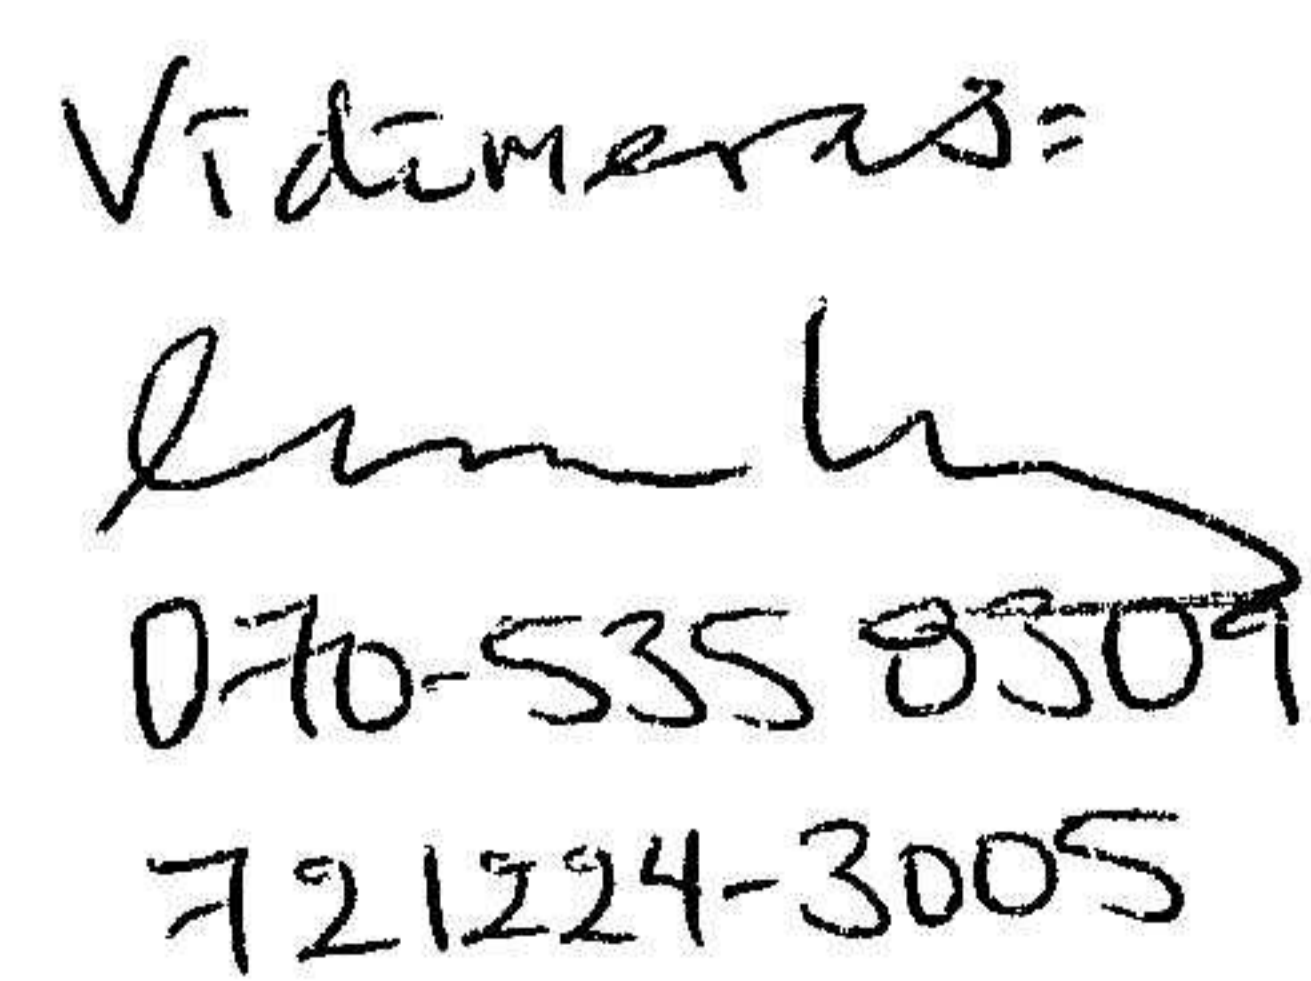 Vidimeras=
070-535 8309
721224-3005